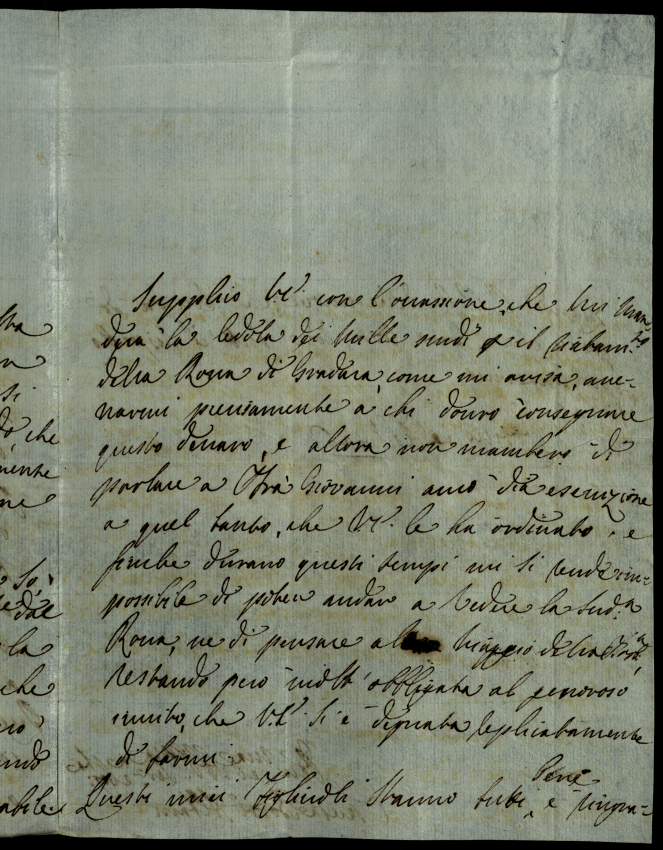 sta
n
si
do, che
mente
ne
so,
le dal
la
che
ro,
ndo
abile
Supplico V.E. con l'occassione, che mi man-
derà la cedola dei mille scudi il
della Rocca di Gradara, come mi avisa, acce-
narmi precisamente a chi dovro consegnare
questo denaro, e allora non mancherò di
parlare a Frà Giovanni acciò dia esecuzione
a quel tanto, che V.E. le ha ordinato, e
finche durano questi tempi mi si rende im-
possibile di poter andare a vedere la Sud.a
Rocca, ne di pensare al viaggio
restando però molt' obbligata al generoso
invito, che V.E. si è dignata replicatamente
di farmi
Questi miei Figliuoli stanno tutti bene, e ringra-